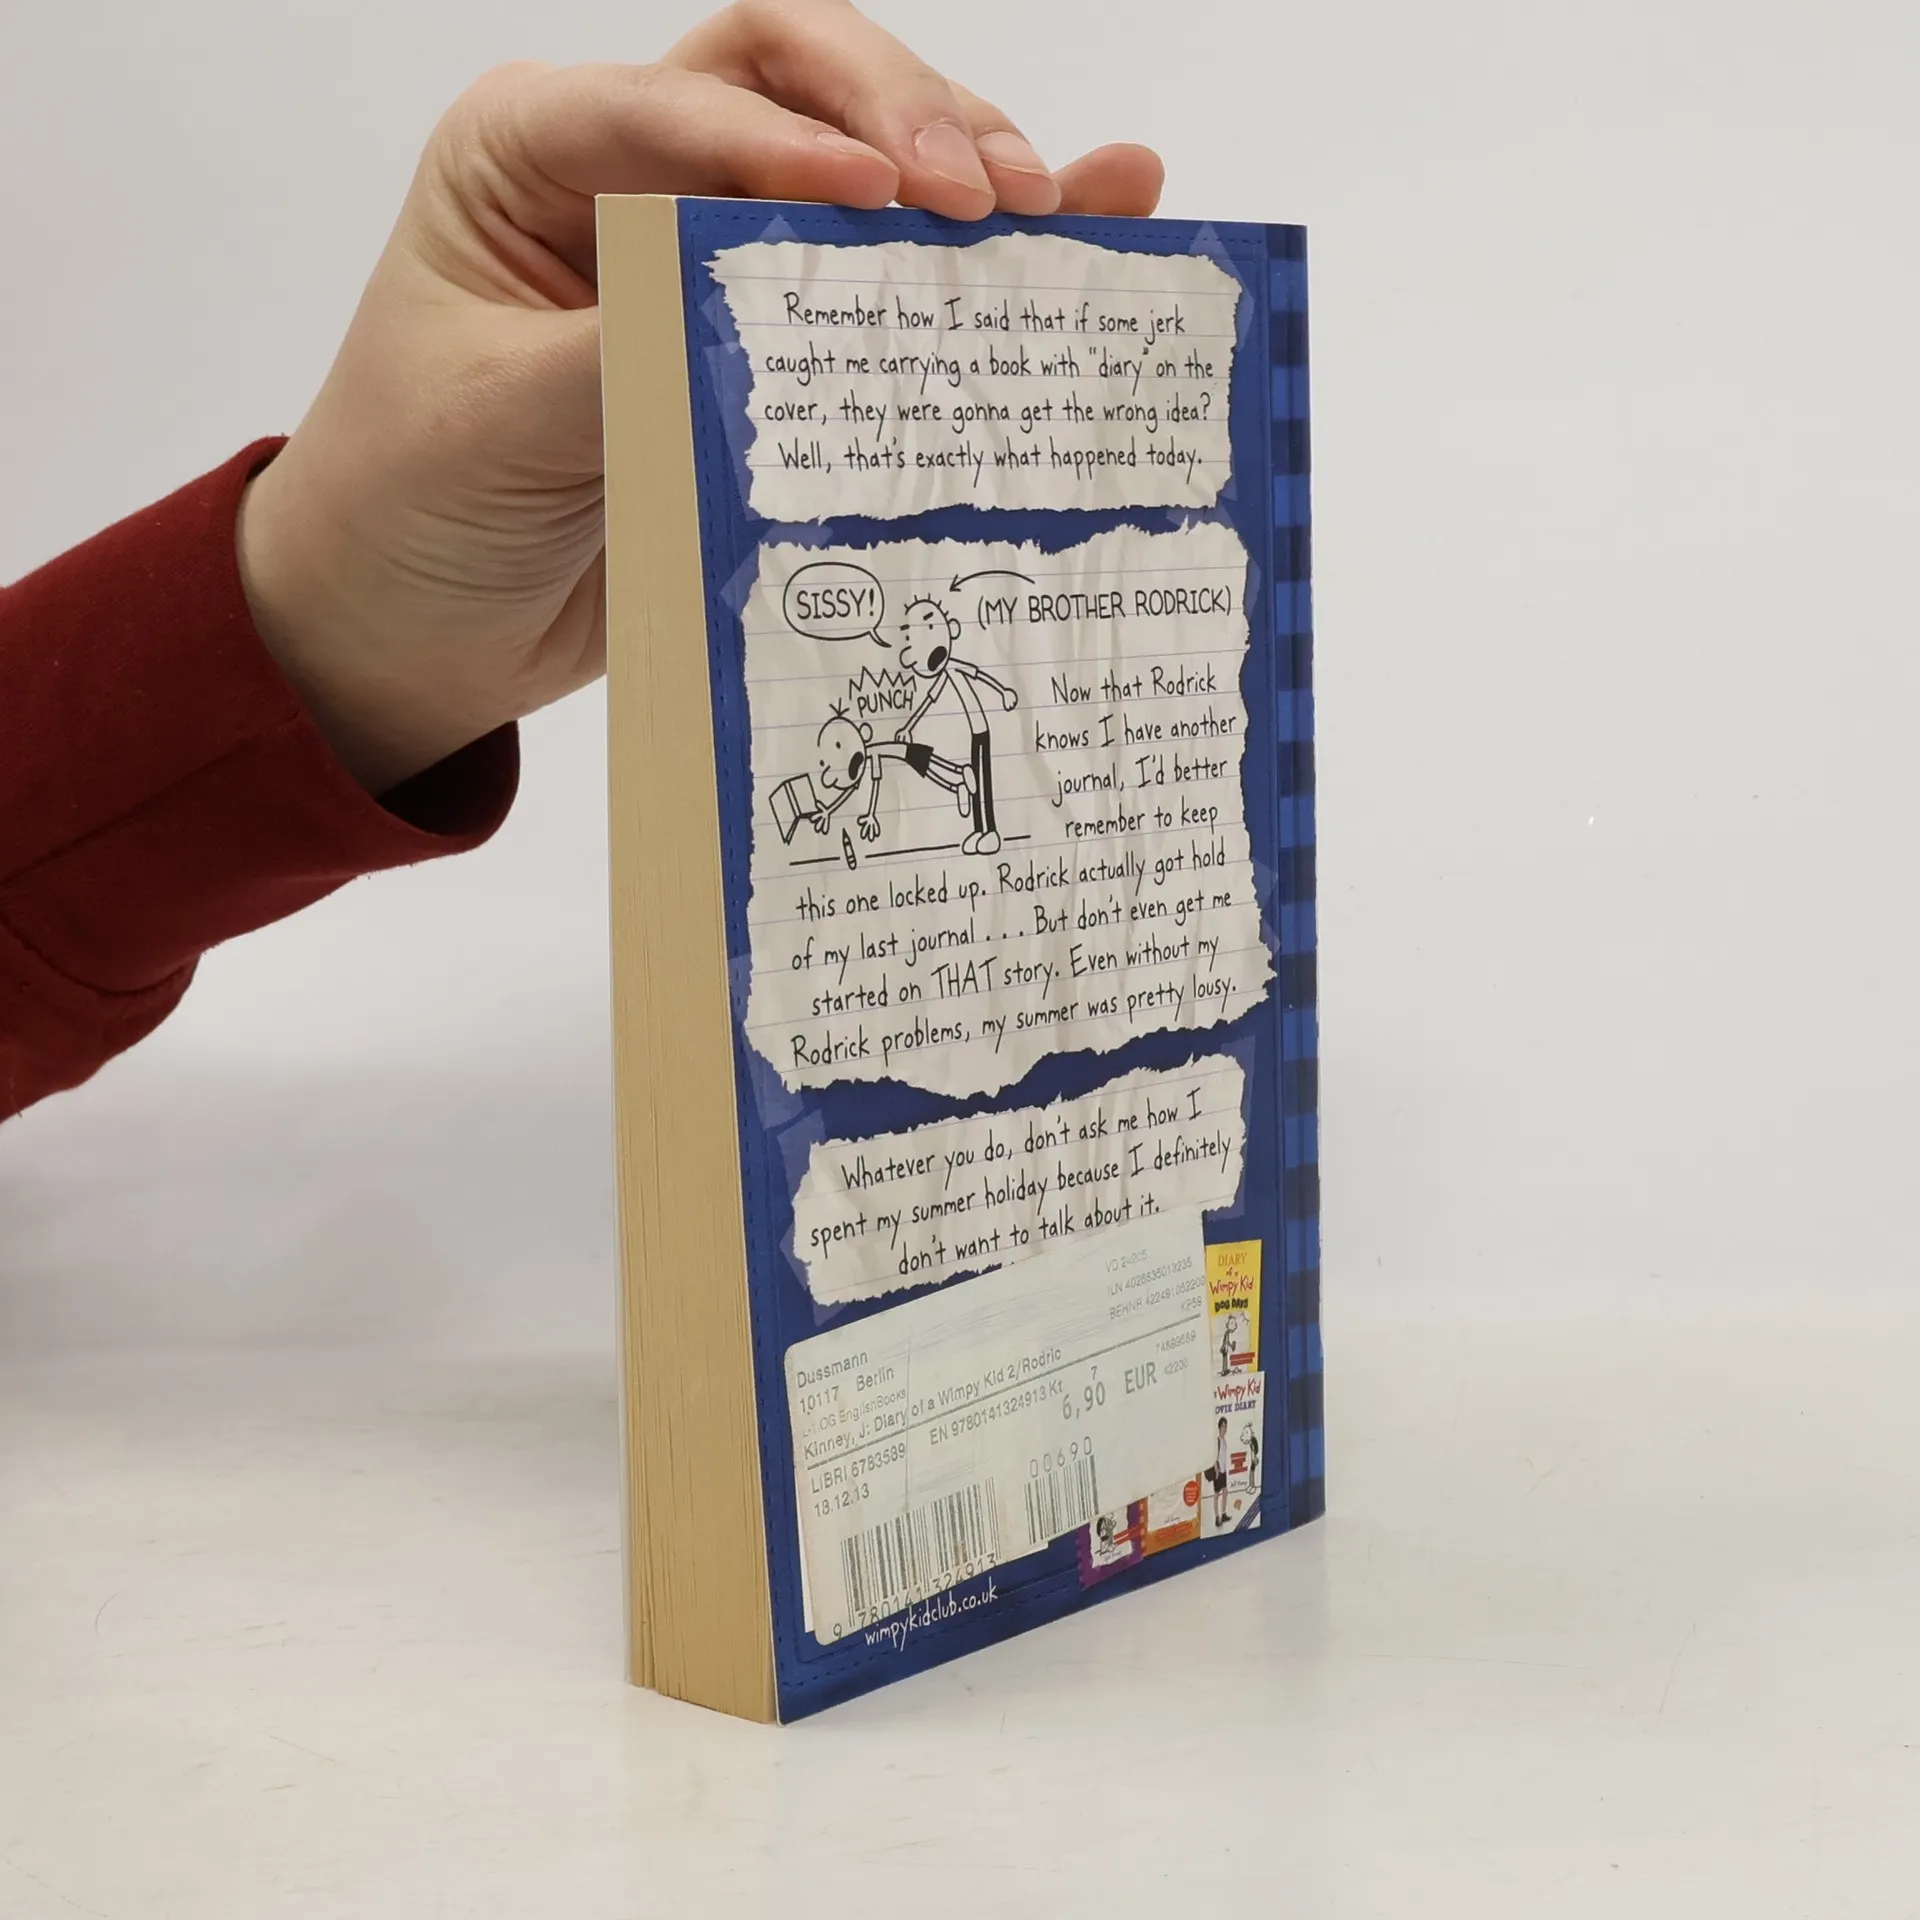 Remember how I said that if some jerk
caught me carrying a book with "diary" on the
cover, they were gonna get the wrong idea?
Well, that's exactly what happened today.
SISSY!
(MY BROTHER RODRICK)
PUNCH
Now that Rodrick
knows I have another
journal, I'd better
remember to keep
this one locked up. Rodrick actually got hold
of my last journal . . . But don't even get me
started on THAT story. Even without my
Rodrick problems, my summer was pretty lousy.
Whatever you do, don't ask me how I
spent my summer holiday because I definitely
don't want to talk about it.
DIARY
of a
Wimpy Kid
DOG DAYS
Wimpy Kid
Dussmann
10117 Berlin
EnglishBooks
Kinney, J: Diary of a Wimpy Kid 2/Rodric
LIBRI 6783589
EN 9780141324913 Kt
7
6,90 EUR
18.12.13
00690
9 780141 324913
wimpykidclub.co.uk